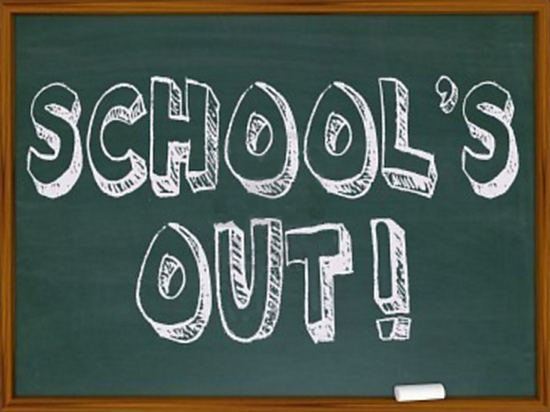 SCHOOL'S
OUT!